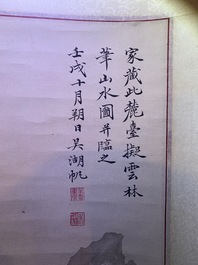 家藏此麓臺擬雲林
筆山水圖并臨之
壬戌十月朔日吳湖帆